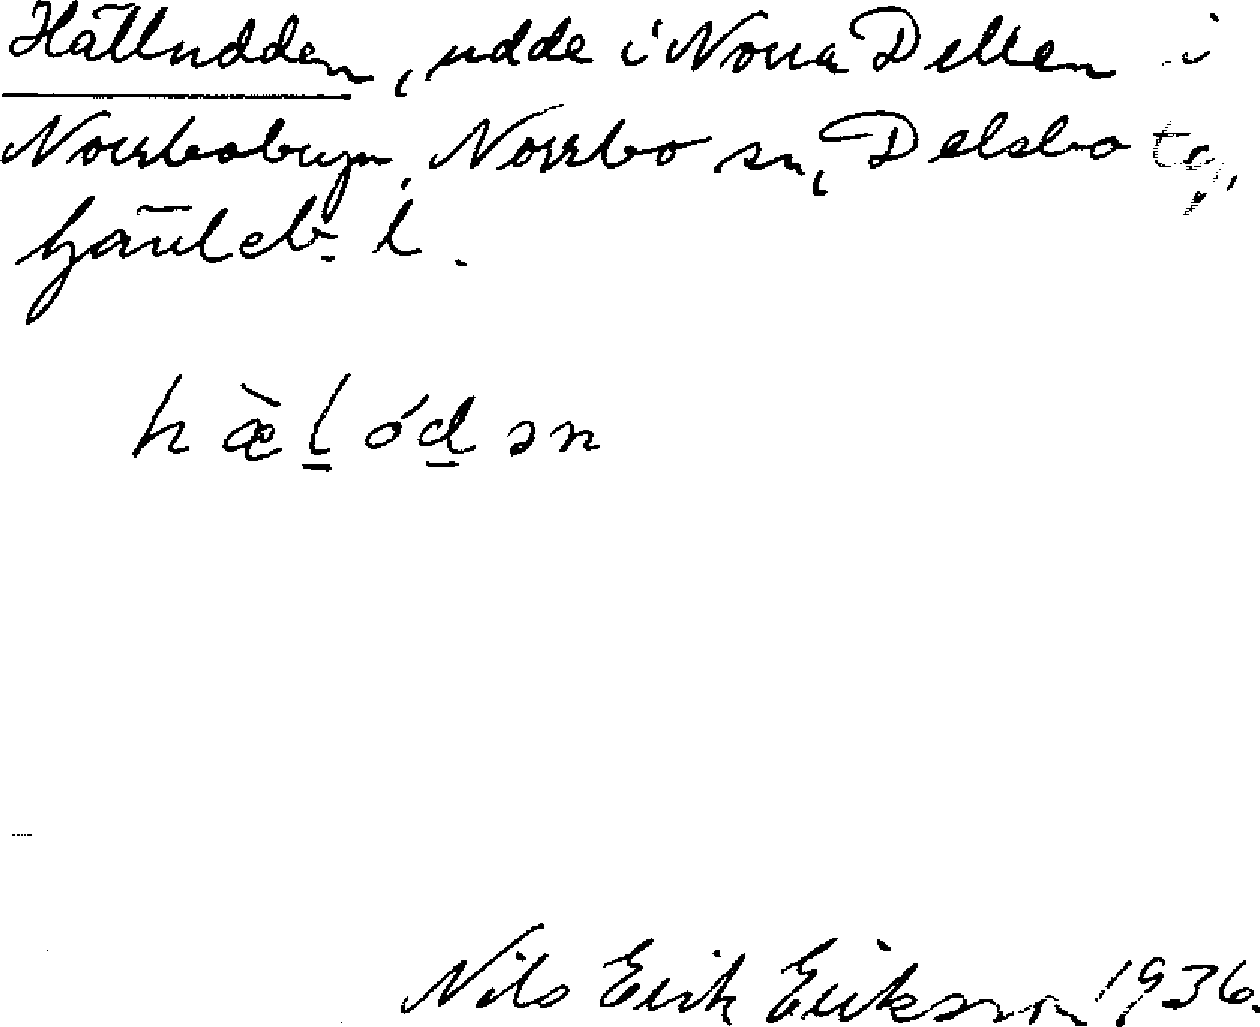 Hälludden, udde i Norra Dellen i
Norrbobyn, Norrbo sn, Delsbo tg,
Gävleb. l.
hæ̀l̠ód̠ən
Nils Erik Eriksson 1936.